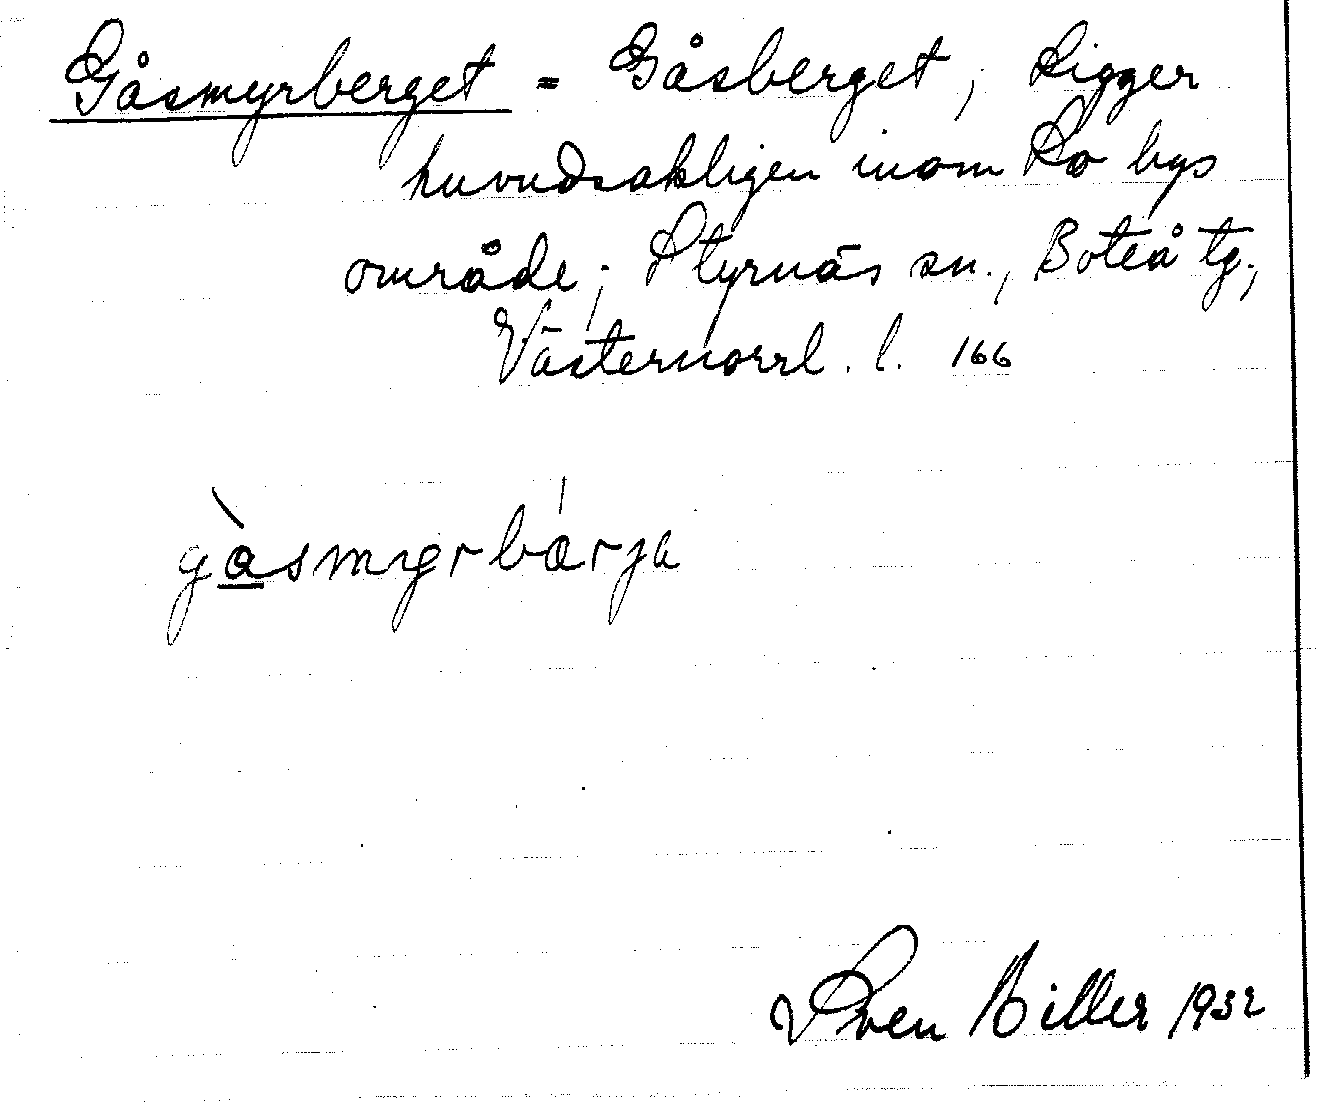 Gåsmyrberget = Gåsberget, Ligger
huvudsakligen inom Lo bys
område; Styrnäs sn., Boteå tg.,
Västernorrl. l. 166
gàsmyrbærja
Sven Biller 1932